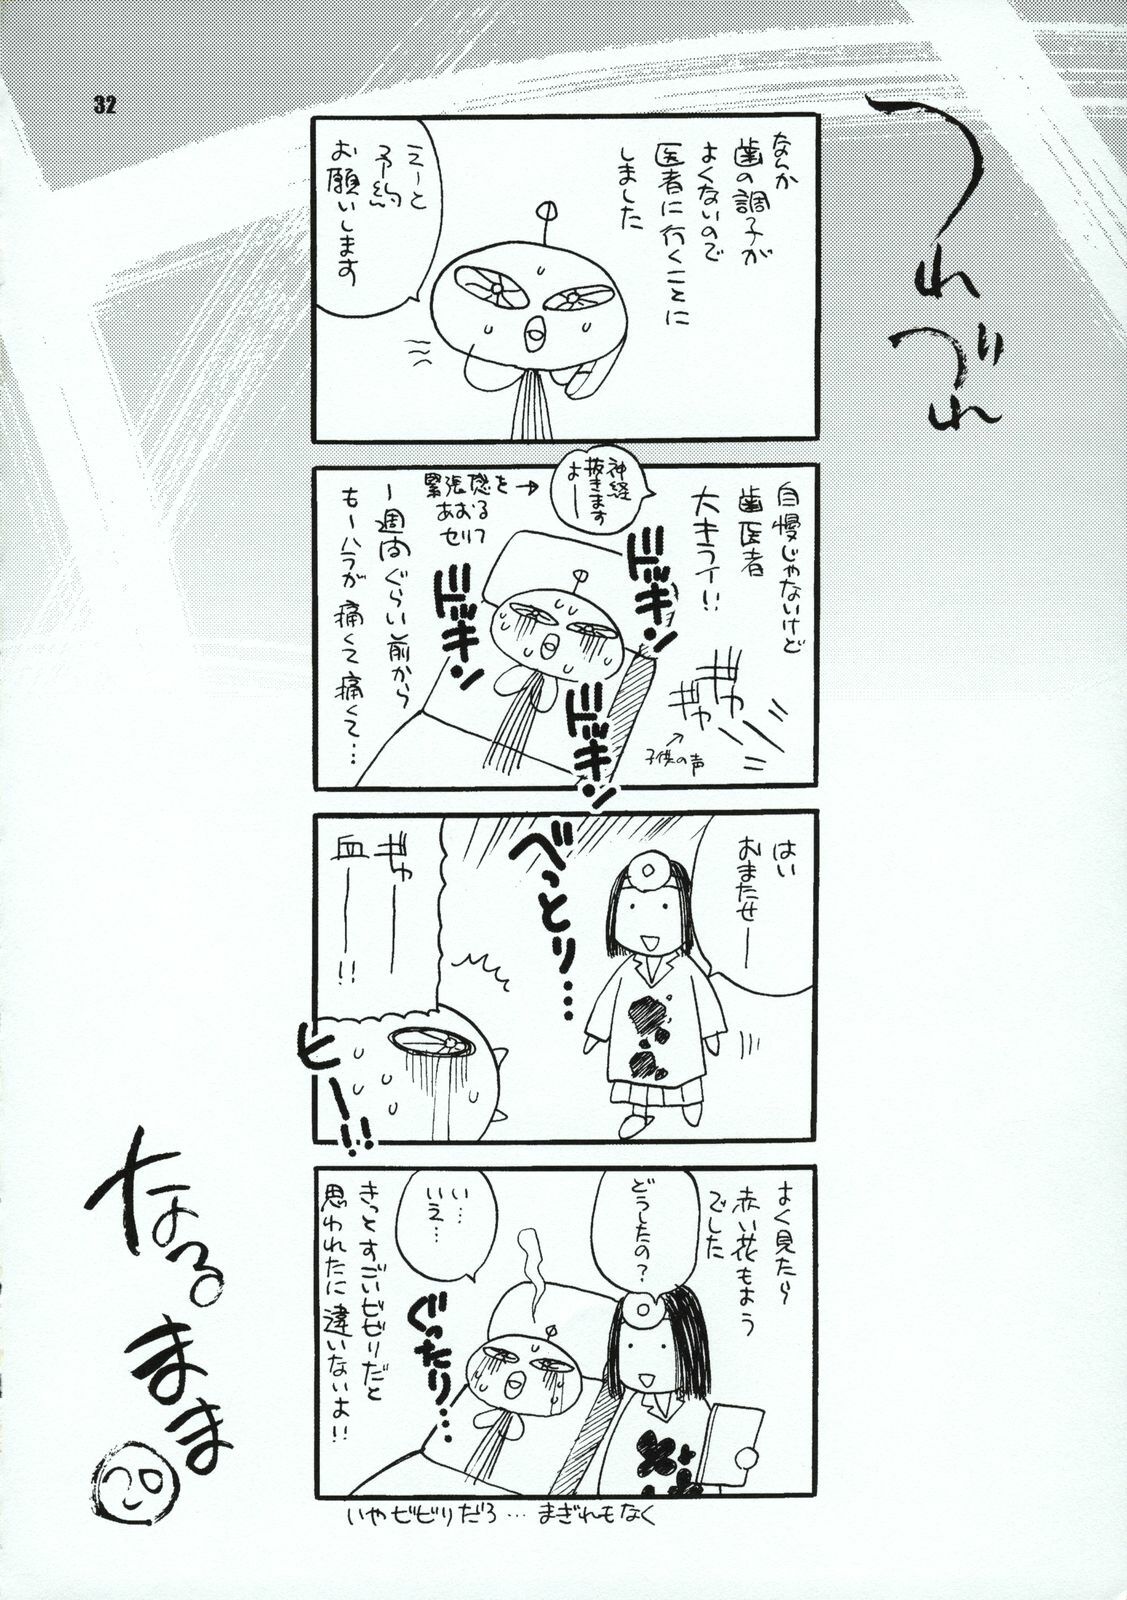 32
つれづれ
なるまま
20
なんか
歯の調子が
よくないので
医者に行くことに
しました
えーと
予約
お願いします
自慢じゃないけど
歯医者
大キライ!!
ギャー
ギャー
子供の声
神経
抜きます
よー
緊張感を→
あおる
セリフ
一週間ぐらい前から
もーハラが痛くて痛くて…
ドッキン
ドッキン
ドッキン
はい
おまたせー
べっとり…
ギャー
血ー!!
ヒー!!
よく見たら
赤い花もよう
でした
どうしたの?
い…
いえ…
ぐったり…
きっとすごいビビりだと
思われたに違いないよ!!
いやビビりだろ…まぎれもなく